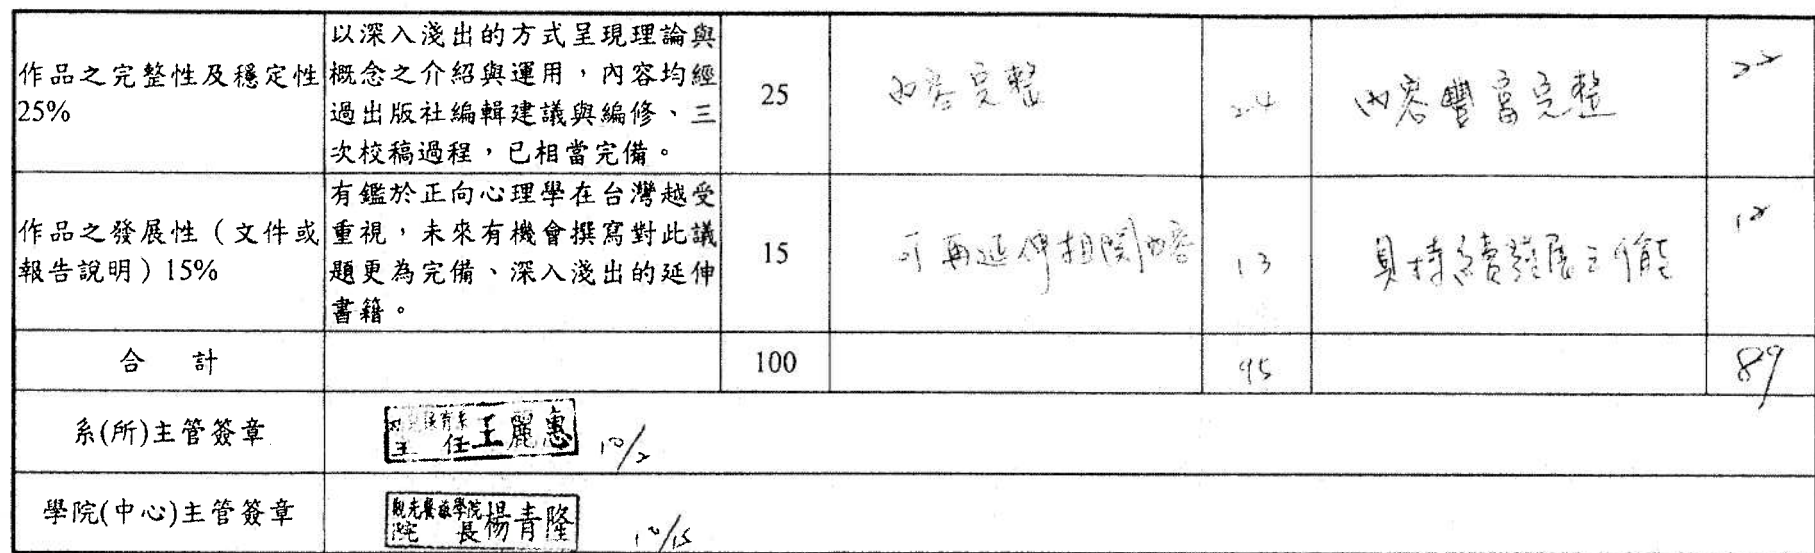 作品之完整性及穩定性
25%
以深入淺出的方式呈現理論與
概念之介紹與運用，內容均經
過出版社編輯建議與編修、三
次校稿過程，已相當完備。
25
內容完整
24
內容豐富完整
22
作品之發展性（文件或
報告說明）15%
有鑑於正向心理學在台灣越受
重視，未來有機會撰寫對此議
題更為完備、深入淺出的延伸
書籍。
15
可再延伸相關內容
13
具持續發展之
12
合 計
100
95
89
系(所)主管簽章
幼兒保育系
主 任 王麗惠
10/2
學院(中心)主管簽章
觀光餐旅學院
院 長 楊青隆
10/15